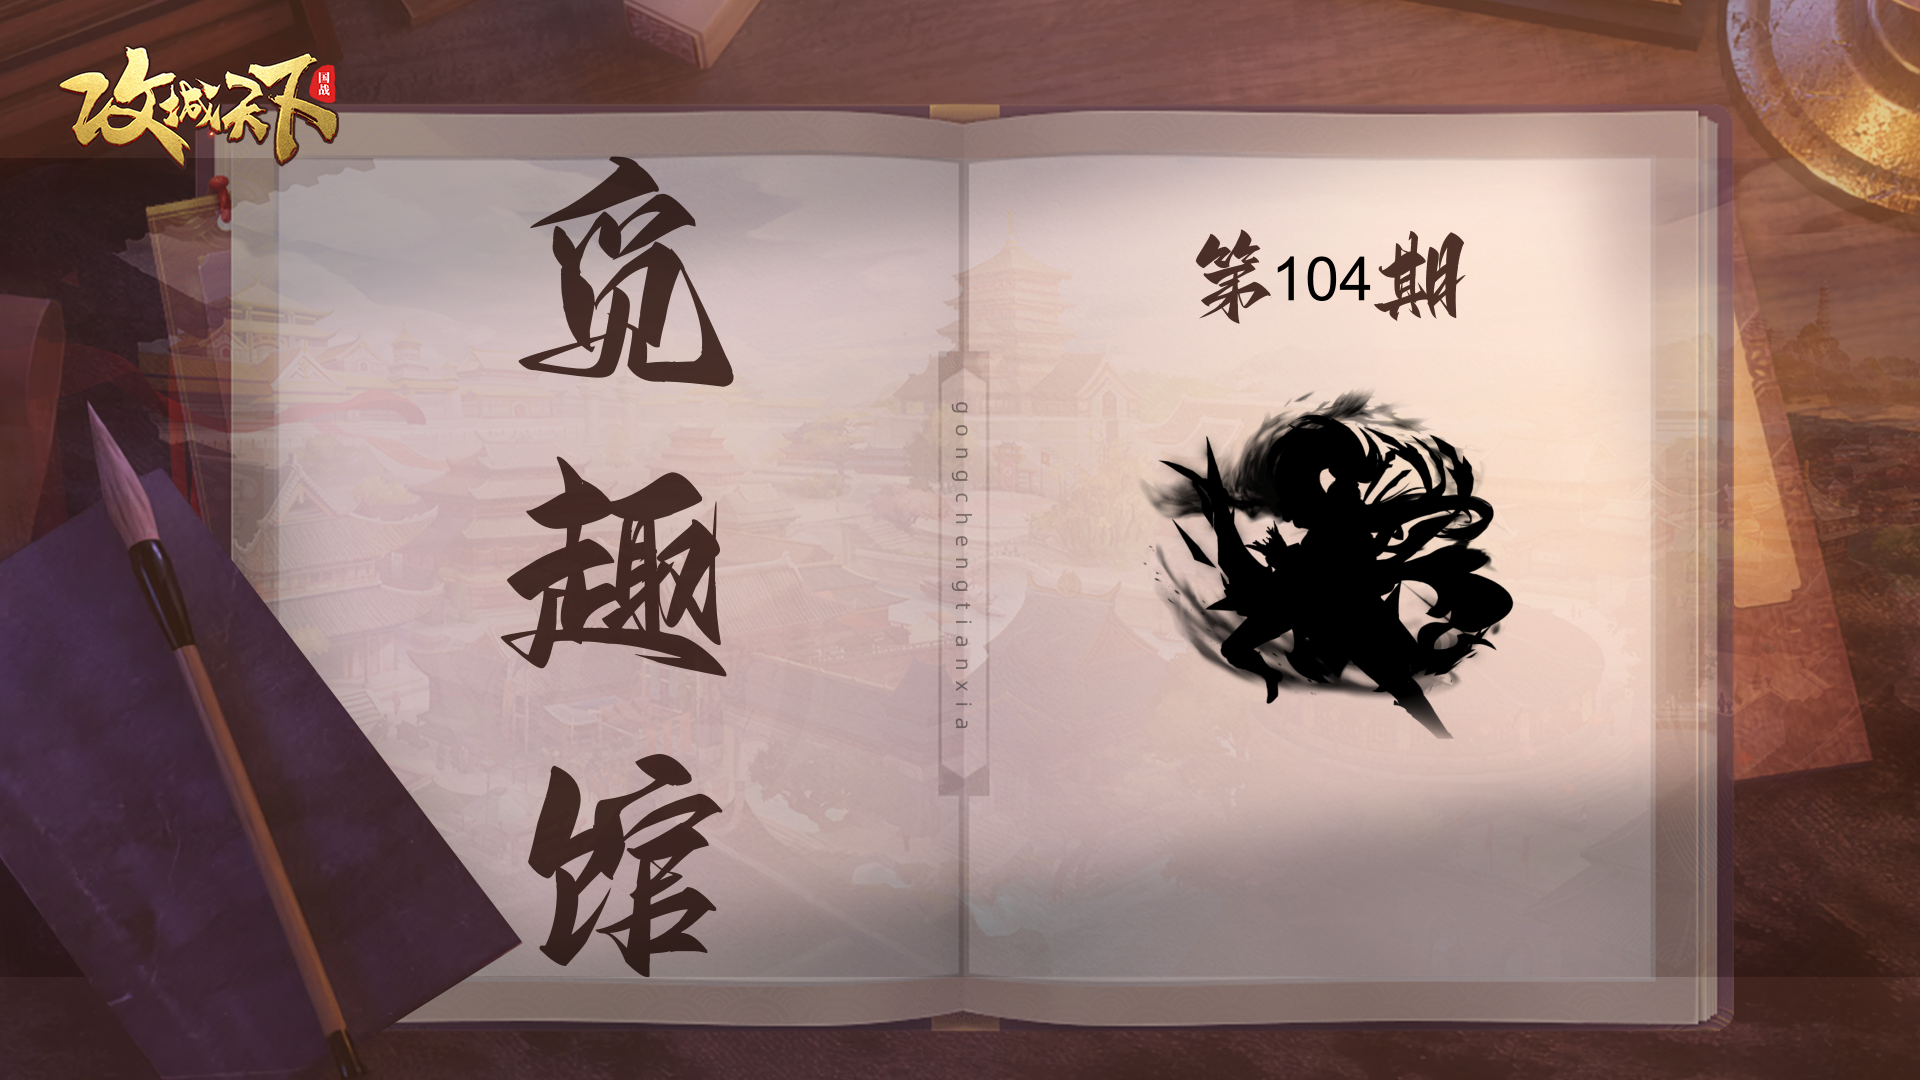 攻城天下
国战
觅趣馆
gongchengtianxia
第104期